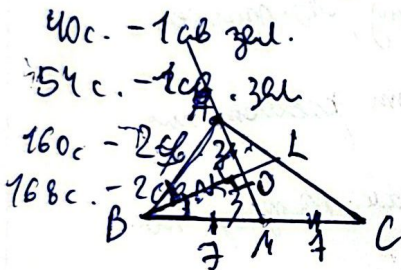 40с. - 1 св зел.
54с. - 1св. зел
160с - 2св
168с. - 2св.
A
L
O
3
B
7
M
7
C